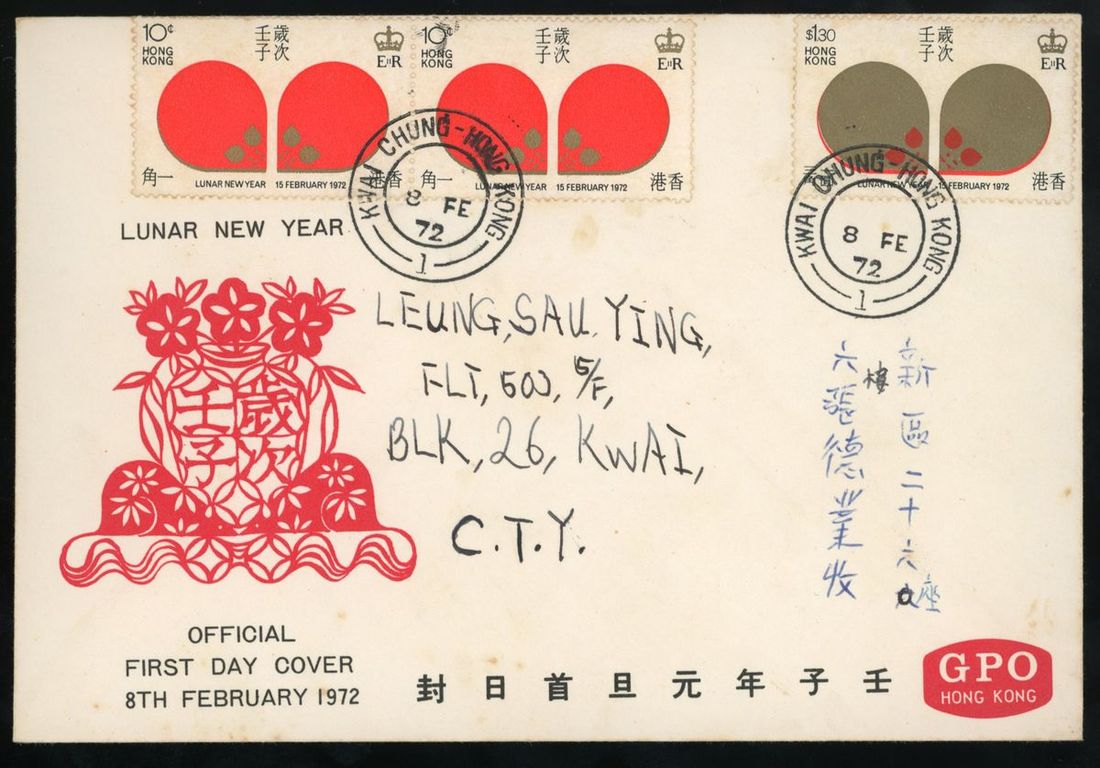 10¢
HONG
KONG
歲次
壬子
EIIR
LUNAR NEW YEAR 15 FEBRUARY 1972
角一
港香
10¢
HONG
KONG
歲次
壬子
EIIR
角一
LUNAR NEW YEAR 15 FEBRUARY 1972
港香
$1.30
HONG
KONG
歲次
壬子
EIIR
LUNAR NEW YEAR 15 FEBRUARY 1972
港香
KWAI CHUNG - HONG KONG
8 FE
72
1
KWAI CHUNG - HONG KONG
8 FE
72
1
LUNAR NEW YEAR
歲次
壬子
LEUNG, SAU YING,
FLT, 503, 5/F,
BLK, 26, KWAI,
C.T.Y.
新區二十六座
六樓
張德業收
OFFICIAL
FIRST DAY COVER
8TH FEBRUARY 1972
封日首旦元年子壬
GPO
HONG KONG